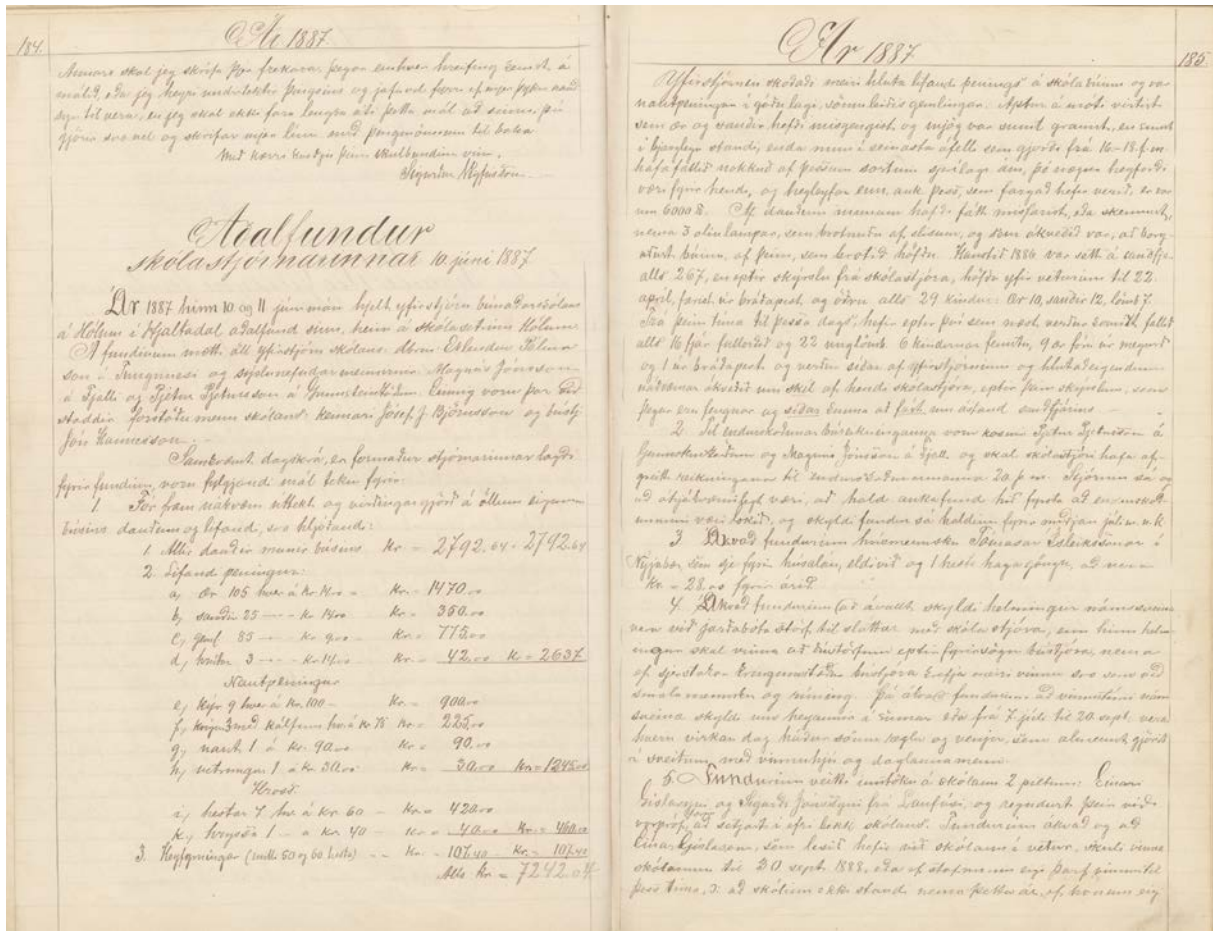 184.
Ár 1887.
Annars skal jeg skrifa þjer frekara þegar einhver hreifing kemst á
málið, eða jeg heyri undirtektir þingsins og jafnvel fyrri ef mjer þykir nauð
syn til vera, en jeg skal ekki fara lengra úti þetta mál að sinni, þú
gjörir svo vel og skrifar mjer línu með þingmönnum til baka
Með kærri kveðju þinn skulbundinn vinur.
Aðalfundur
skólastjórnarinnar 10. júni 1887
Ár 1887 hinn 10 og 11 júnímán hjelt yfirstjórn búnaðarskólans
á Hólum í Hjaltadal aðalfund sinn, heima á skólasetrinu Hólum.
Á fundinum mætti öll yfirstjórn skólans: dbrm. Erlendur Pálma
son í Tungunesi og sýslunefndarmennirnir Magnús Jónsson
á Fjalli og Pjetur Pjetursson á Gunnsteinstöðum. Einnig voru þar við
staddir forstöðumenn skólans: kennari Jósef J Björnsson og bústj.
Jón Hannesson.
Samkvæmt dagskrá, er formaður stjórnarinnar lagði
fyrir fundinn, voru fylgjandi mál tekin fyrir:
1. Fór fram nákvæm úttekt og virðingargjörð á öllum eigum
búsins dauðum og lifandi, svo hljóðandi:
1. Allir dauðir munir búsins Kr. = 2792.64 = 2792.64
2. Lifandi peningur:
a, ær 105 hver á kr 14.00 = Kr. = 1470.00
b, sauðir 25 — - kr 14.00 Kr. = 350.00
c, geml. 85 — - kr 9.00 - Kr. = 775.00
d, hrútar 3 — - kr 14.00 Kr. = 42.00 Kr = 2637
Nautpeningur
e, kýr 9 hver á kr. 100 - Kr. = 900.00
f, kvígur 3 með kálfum hver á kr 75 Kr. = 225.00
g, naut 1 á kr. 90.00 Kr. = 90.00
h, vetrungur 1 á kr 30.00 Kr. = 30.00 Kr. = 1245.00
Hross.
i, hestar 7 hver á kr 60 - Kr. = 420.00
k, hryssa 1 - á kr. 40 - Kr. = 40.00 Kr. = 460.00
3. Heyfyrningar (milli 50 og 60 hesta) - - Kr. = 107.40 Kr. = 107.40
Alls kr. = 7242.04
Ár 1887
185.
Yfirstjórnin skoðaði meiri hluta lifandi penings á skólabúinu og var
nautpeningur í góðu lagi, sömuleiðis gemlingar. Aptur á móti virtist
sem ær og sauðir hefði misgengist, og mjög var sumt grannt, en sumt
í bjanlegu standi, enda mun í seinasta áfelli sem gjörði frá 16-18 f.m
hafa fallið nokkuð af þessum sortum, þó nægar heybirgðir
væri fyrir hendi, og heyleyfar enn, auk þess, sem fargað hefir verið, er var
um 6000 ℔. Af dauðum munum hafði fátt misfarist, eða skemmst,
nema 3 olíulampar, sem brotnuðu af slysum, og sem ákveðið var, að borg-
aðust búinu, af þeim, sem brotið höfðu. Haustið 1886 var sett á sauðfje
alls 267, en eptir skýrslu frá skólastjóra, höfðu yfir veturinn til 22.
apríl, farist úr bráðapest og öðru alls 29 kindur: Ær 10, sauðir 12, lömb 7.
Frá þeim tíma til þessa dags, hefir eptir því sem næst verður komist fallið
alls 16 fjár fullorðið og 22 unglömb. 6 kindurnar fenntu, 9 af fór úr megurð
og 1 úr bráðapest og verður síðar af yfirstjórninni og hlutaðeigendum
nákvæmar ákveðið um skil af hendi skólastjóra, eptir þeim skýrslum, sem
þegar eru fengnar og síðar kunna að fást um ástand sauðfjárins.
2. Til endurskoðunar búsreikninganna voru kosnir Pjetur Pjetursson á
Gunnsteinstöðum og Magnús Jónsson á Fjalli og skal skólastjóri hafa af-
greitt reikningana til endurskoðunarmanna 20. þ. m. Stjórnin sá og
að óhjákvæmilegt væri, að halda aukafund hið fyrsta að endurskoð-
uninni væri lokið, og skyldi fundur sá haldinn fyrir miðjan júlí m. n. k
3. Ákvað fundurinn húsmennsku Tómasar Ísleikssonar í
Nýjabæ, sem sje fyrir húsalán, eldivið og 1 hests hagagöngu, að nema
Kr. = 28.00 fyrir árið.
4. Ákvað fundurinn að ávallt skyldi helmingur námssveina
vera við jarðabóta störf til sláttar með skólastjóra, einn hinn helm-
ingur skal vinna að bústörfum eptir fyrirsögn bústjóra, nema
ef sjerstakar kringumstæður bústjóra krefja meiri vinnu svo sem að
smala mennsku og rúning. Þá ákvað fundurinn að vinnutími náms
sveina skyldi um heyannir á sumar eða frá 7. júlí til 20. sept. vera
hvern virkan dag háður sömu reglu og venjur, sem almennt gjörist
í sveitum, með vinnuhjú og daglaunamenn.
5. Fundurinn veitti inntöku á skólann 2 piltum: Einari
Gíslasyni og Sigurði Jónssyni frá Laufási, og reyndust þeir við
vorpróf, að setjast í efri bekk skólans. Fundurinn ákvað og að
Einar Gíslason, sem lesið hefir við skólann í vetur, skuli vinna
skólanum til 30 sept. 1888, eða ef stofnunin eigi þarf vinnu til
þess tíma, ɔ: að skólinn ekki standi nema þetta ár, af honum eig